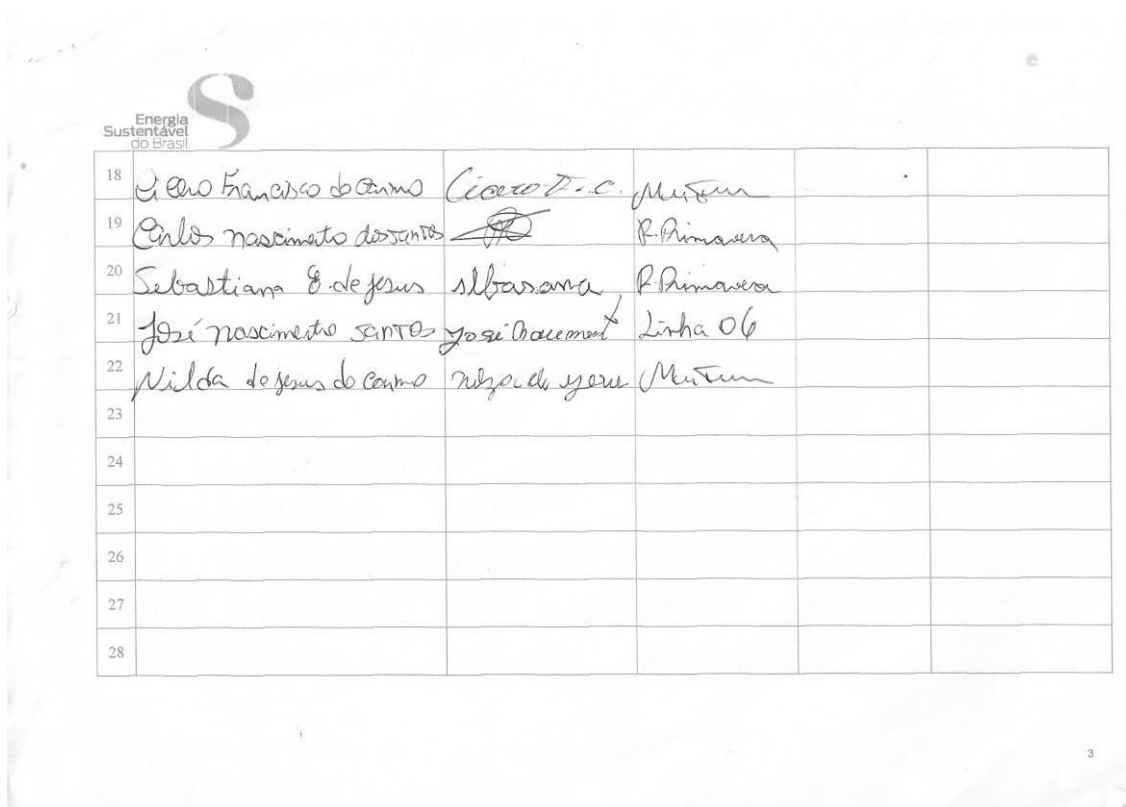 Energia
Sustentável
do Brasil
18 Cicero Francisco do Carmo Cicero F. C. Mutum
19 Carlos nascimento dos santos R. Primavera
20 Sebastiana E. de jesus R. Primavera
21 José nascimento santos José Linha 06
22 Nilda de jesus do Carmo Mutum
23
24
25
26
27
28
3